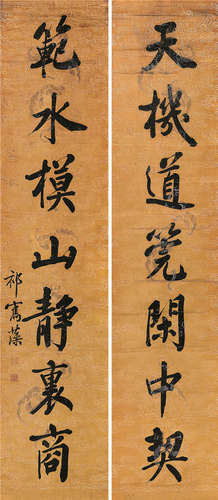 天機道筦閑中契
範水模山静裏商
祁寯藻